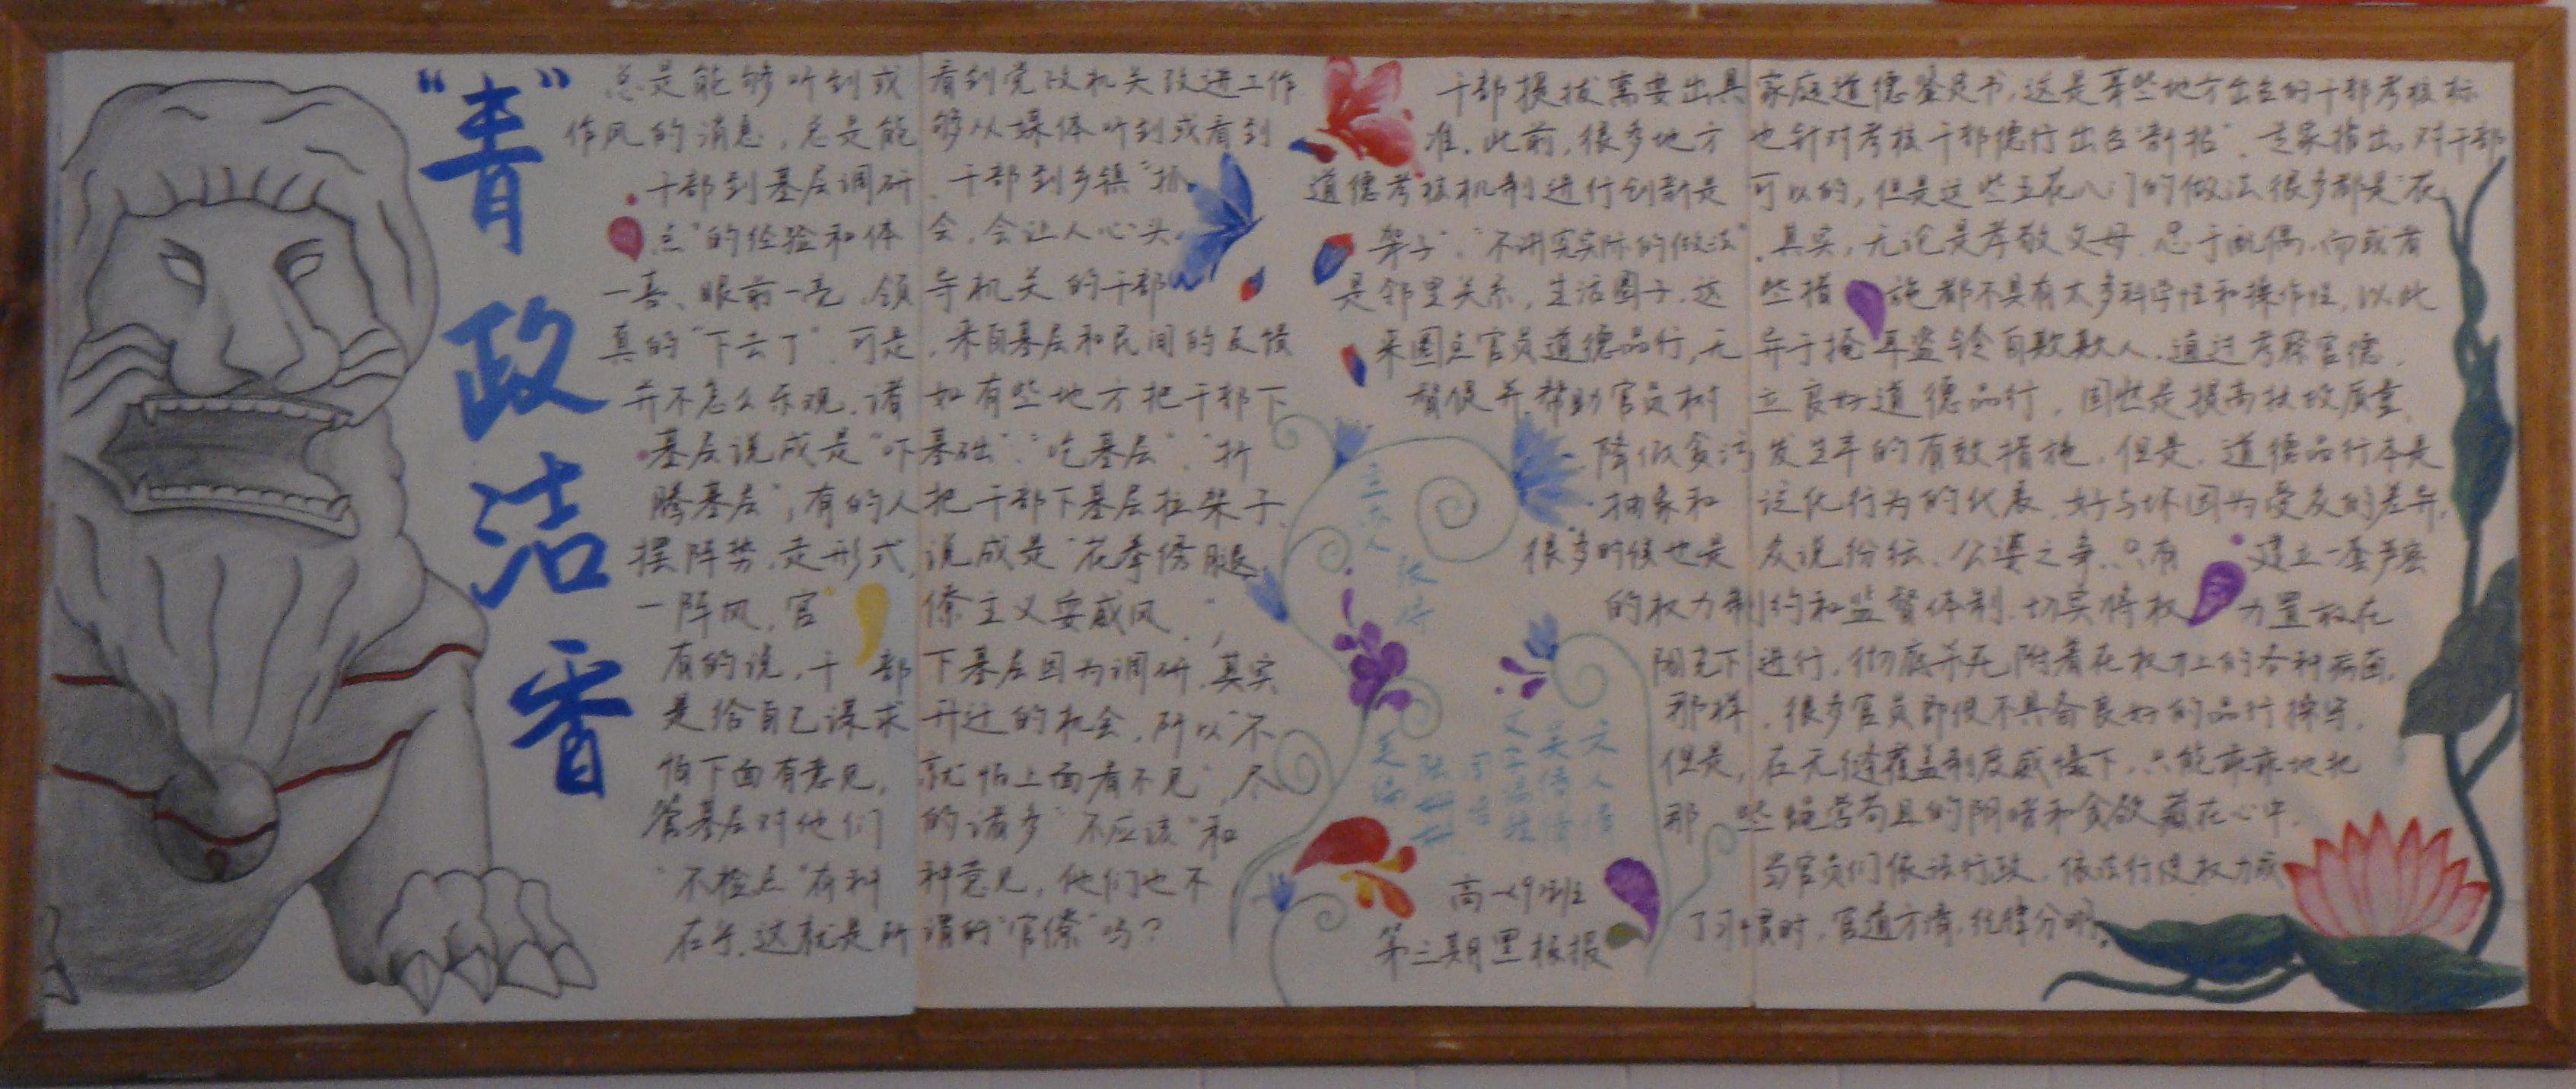 “青”政洁香
总是能够听到或看到党政机关改进工作
作风的消息，总是能够从媒体听到或看到
干部到基层调研、干部到乡镇“抓
点”的经验和体会，会让人心头
一喜、眼前一亮，领导机关的干部
真的“下去了”。可是，来自基层和民间的反馈
并不怎么乐观。诸如有些地方把干部下
基层说成是“吓基础”、“吃基层”、“折
腾基层”，有的人把干部下基层拉架子、
摆阵势、走形式，说成是“花拳绣腿
一阵风，官僚主义耍威风”，
有的说，干部下基层因为调研，其实
是给自己谋求升迁的机会，所以“不
怕下面有意见，就怕上面看不见”，尽
管基层对他们的诸多“不应该”和
“不检点”有种种意见，他们也不
在乎，这就是所谓的“官僚”吗？
干部提拔需要出具家庭道德鉴定书，这是某些地方出台的干部考核标
准。此前，很多地方也针对考核干部德行出台“新招”。专家指出，对干部
道德考核机制进行创新是可以的，但是这些五花八门的做法很多都是“花
架子”、“不讲究实际的做法”。其实，无论是孝敬父母、忠于配偶，而或者
是邻里关系，生活圈子，这些措施都不具有太多科学性和操作性，以此
来圈点官员道德品行，无异于掩耳盗铃自欺欺人。通过考察官德，
督促并帮助官员树立良好道德品行，固然是提高执政质量、
降低贪污发生率的有效措施，但是，道德品行本是
抽象和泛化行为的代表，好与坏因为受众的差异，
很多时候也是众说纷纭、公婆之争。只有建立一套严密
的权力制约和监督体制，切实将权力置放在
阳光下进行，彻底杀死附着在权力上的各种病菌。
那样，很多官员即便不具备良好的品行操守，
但是，在无缝覆盖制度威慑下，只能乖乖地把
那些蝇营苟且的阴暗和贪欲藏在心中。
当官员们依法行政、依法行使权力成
了习惯时，官道方清，纪律分明。
高一(9)班
第三期黑板报